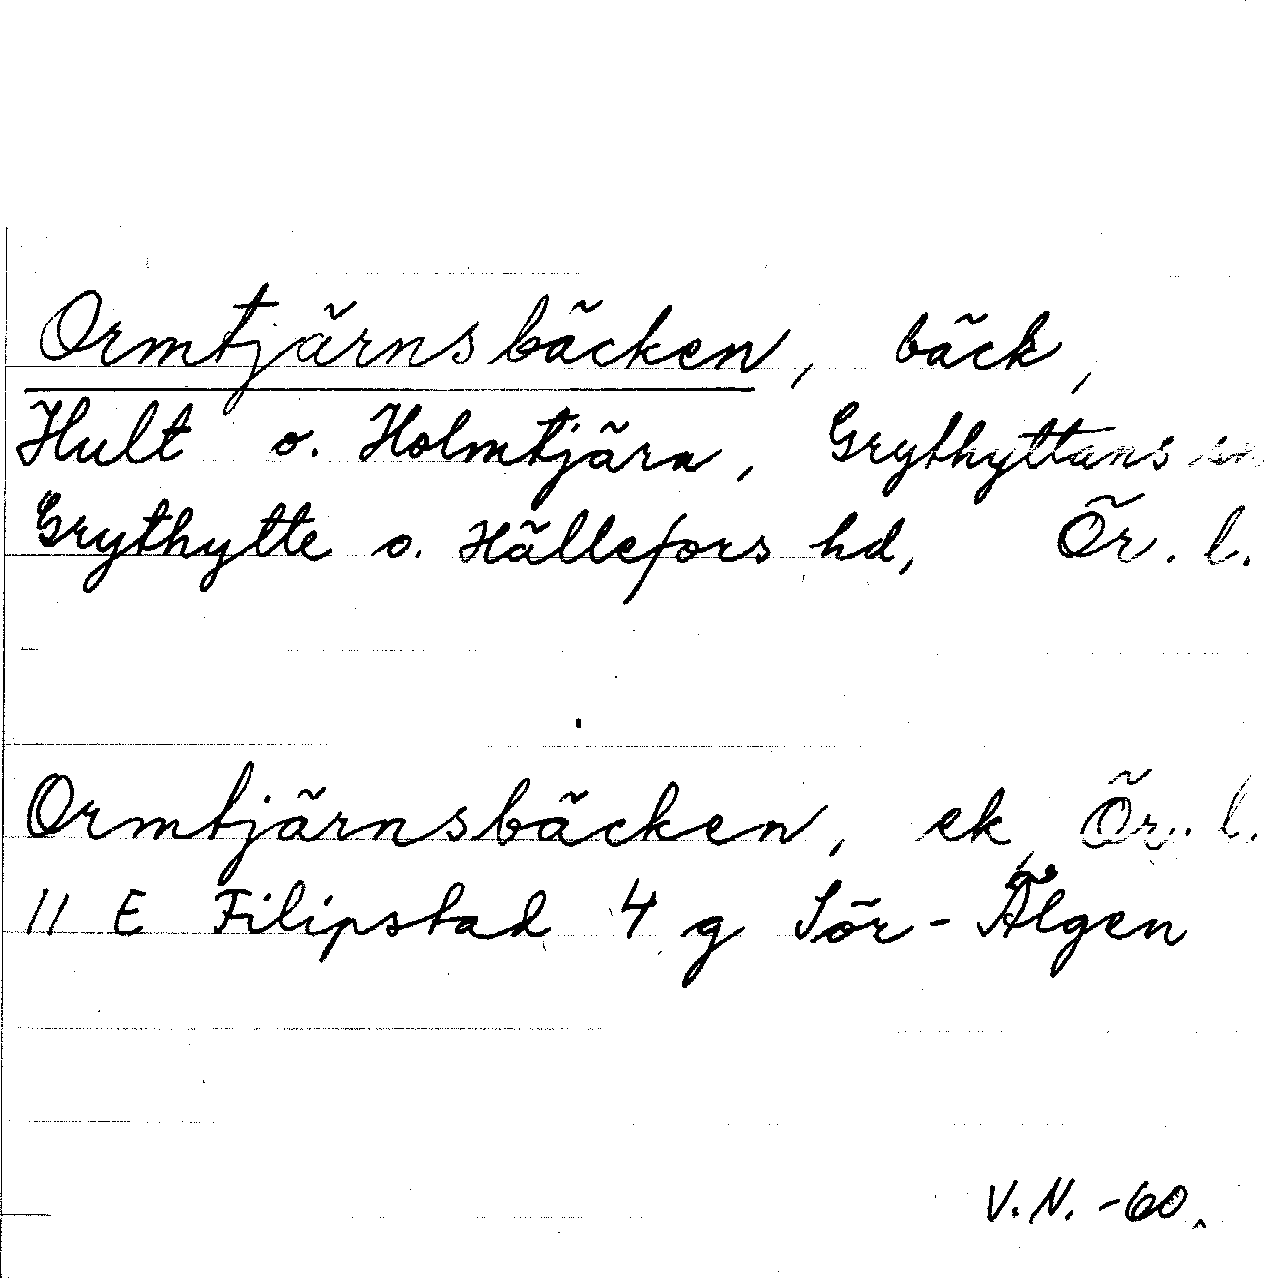 Ormtjärnsbäcken, bäck,
Hult o. Holmtjärn, Grythyttans sn
Grythytte o. Hällefors hd, Ör. l.
Ormtjärnsbäcken, ek, Ör. l.
11 E Filipstad 4 g Sör-Älgen
V.N. -60.